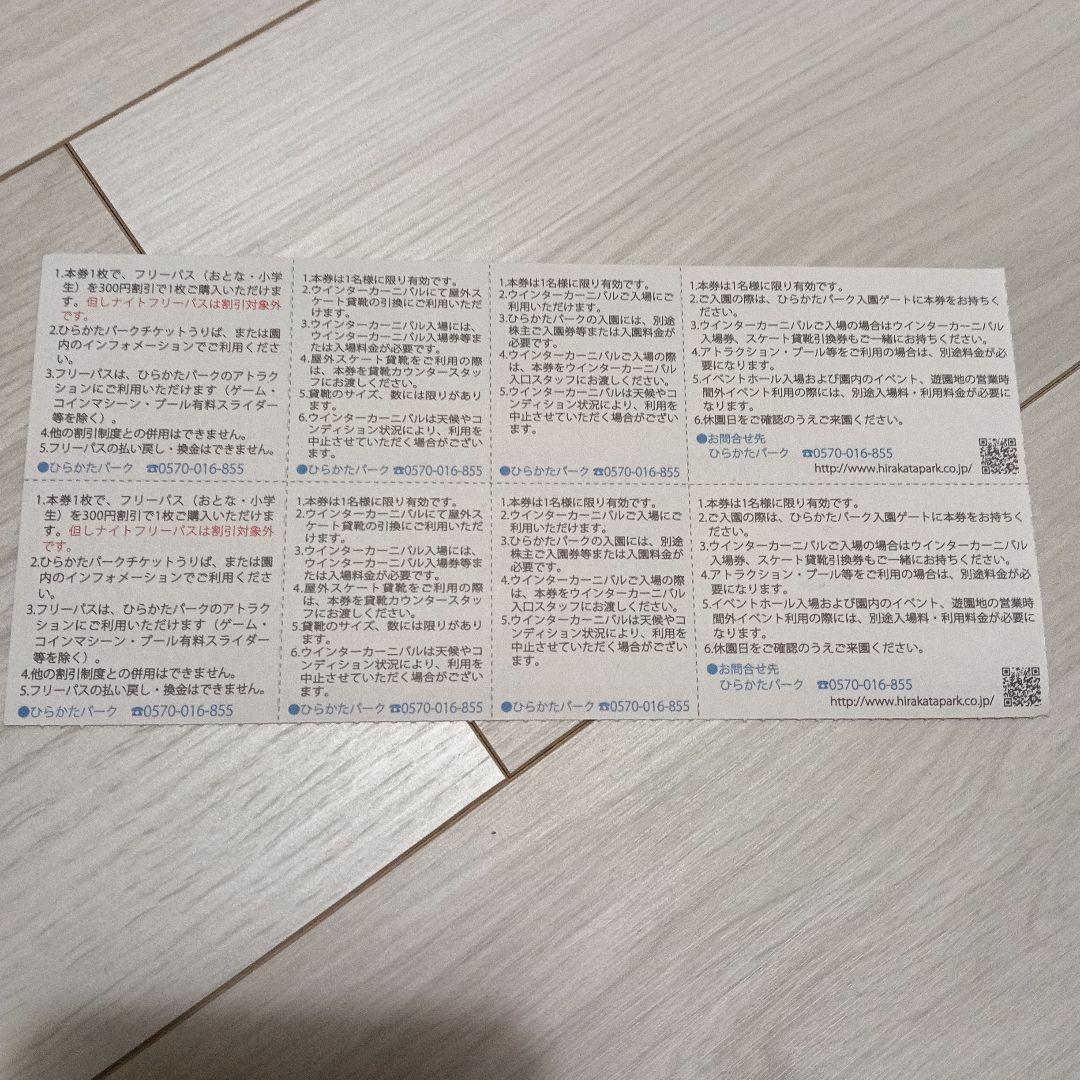 1.本券1枚で、フリーパス（おとな・小学
生）を300円割引で1枚ご購入いただけま
す。但しナイトフリーパスは割引対象外
です。
2.ひらかたパークチケットうりば、または園
内のインフォメーションでご利用くださ
い。
3.フリーパスは、ひらかたパークのアトラク
ションにご利用いただけます（ゲーム・
コインマシーン・プール有料スライダー
等を除く）。
4.他の割引制度との併用はできません。
5.フリーパスの払い戻し・換金はできません。
●ひらかたパーク ☎0570-016-855
1.本券は1名様に限り有効です。
2.ウインターカーニバルにて屋外ス
ケート貸靴の引換にご利用いただ
けます。
3.ウインターカーニバル入場には、
ウインターカーニバル入場券等ま
たは入場料金が必要です。
4.屋外スケート貸靴をご利用の際
は、本券を貸靴カウンタースタッ
フにお渡しください。
5.貸靴のサイズ、数には限りがあり
ます。
6.ウインターカーニバルは天候やコ
ンディション状況により、利用を
中止させていただく場合がござい
ます。
●ひらかたパーク ☎0570-016-855
1.本券は1名様に限り有効です。
2.ウインターカーニバルご入場にご
利用いただけます。
3.ひらかたパークの入園には、別途
株主ご入園券等または入園料金が
必要です。
4.ウインターカーニバルご入場の際
は、本券をウインターカーニバル
入口スタッフにお渡しください。
5.ウインターカーニバルは天候やコ
ンディション状況により、利用を
中止させていただく場合がござい
ます。
●ひらかたパーク ☎0570-016-855
1.本券は1名様に限り有効です。
2.ご入園の際は、ひらかたパーク入園ゲートに本券をお持ちく
ださい。
3.ウインターカーニバルご入場の場合はウインターカーニバル
入場券、スケート貸靴引換券もご一緒にお持ちください。
4.アトラクション・プール等をご利用の場合は、別途料金が必
要になります。
5.イベントホール入場および園内のイベント、遊園地の営業時
間外イベント利用の際には、別途入場料・利用料金が必要に
なります。
6.休園日をご確認のうえご来園ください。
●お問合せ先
ひらかたパーク ☎0570-016-855
http://www.hirakatapark.co.jp/
1.本券1枚で、フリーパス（おとな・小学
生）を300円割引で1枚ご購入いただけま
す。但しナイトフリーパスは割引対象外
です。
2.ひらかたパークチケットうりば、または園
内のインフォメーションでご利用くださ
い。
3.フリーパスは、ひらかたパークのアトラク
ションにご利用いただけます（ゲーム・
コインマシーン・プール有料スライダー
等を除く）。
4.他の割引制度との併用はできません。
5.フリーパスの払い戻し・換金はできません。
●ひらかたパーク ☎0570-016-855
1.本券は1名様に限り有効です。
2.ウインターカーニバルにて屋外ス
ケート貸靴の引換にご利用いただ
けます。
3.ウインターカーニバル入場には、
ウインターカーニバル入場券等ま
たは入場料金が必要です。
4.屋外スケート貸靴をご利用の際
は、本券を貸靴カウンタースタッ
フにお渡しください。
5.貸靴のサイズ、数には限りがあり
ます。
6.ウインターカーニバルは天候やコ
ンディション状況により、利用を
中止させていただく場合がござい
ます。
●ひらかたパーク ☎0570-016-855
1.本券は1名様に限り有効です。
2.ウインターカーニバルご入場にご
利用いただけます。
3.ひらかたパークの入園には、別途
株主ご入園券等または入園料金が
必要です。
4.ウインターカーニバルご入場の際
は、本券をウインターカーニバル
入口スタッフにお渡しください。
5.ウインターカーニバルは天候やコ
ンディション状況により、利用を
中止させていただく場合がござい
ます。
●ひらかたパーク ☎0570-016-855
1.本券は1名様に限り有効です。
2.ご入園の際は、ひらかたパーク入園ゲートに本券をお持ちく
ださい。
3.ウインターカーニバルご入場の場合はウインターカーニバル
入場券、スケート貸靴引換券もご一緒にお持ちください。
4.アトラクション・プール等をご利用の場合は、別途料金が必
要になります。
5.イベントホール入場および園内のイベント、遊園地の営業時
間外イベント利用の際には、別途入場料・利用料金が必要に
なります。
6.休園日をご確認のうえご来園ください。
●お問合せ先
ひらかたパーク ☎0570-016-855
http://www.hirakatapark.co.jp/